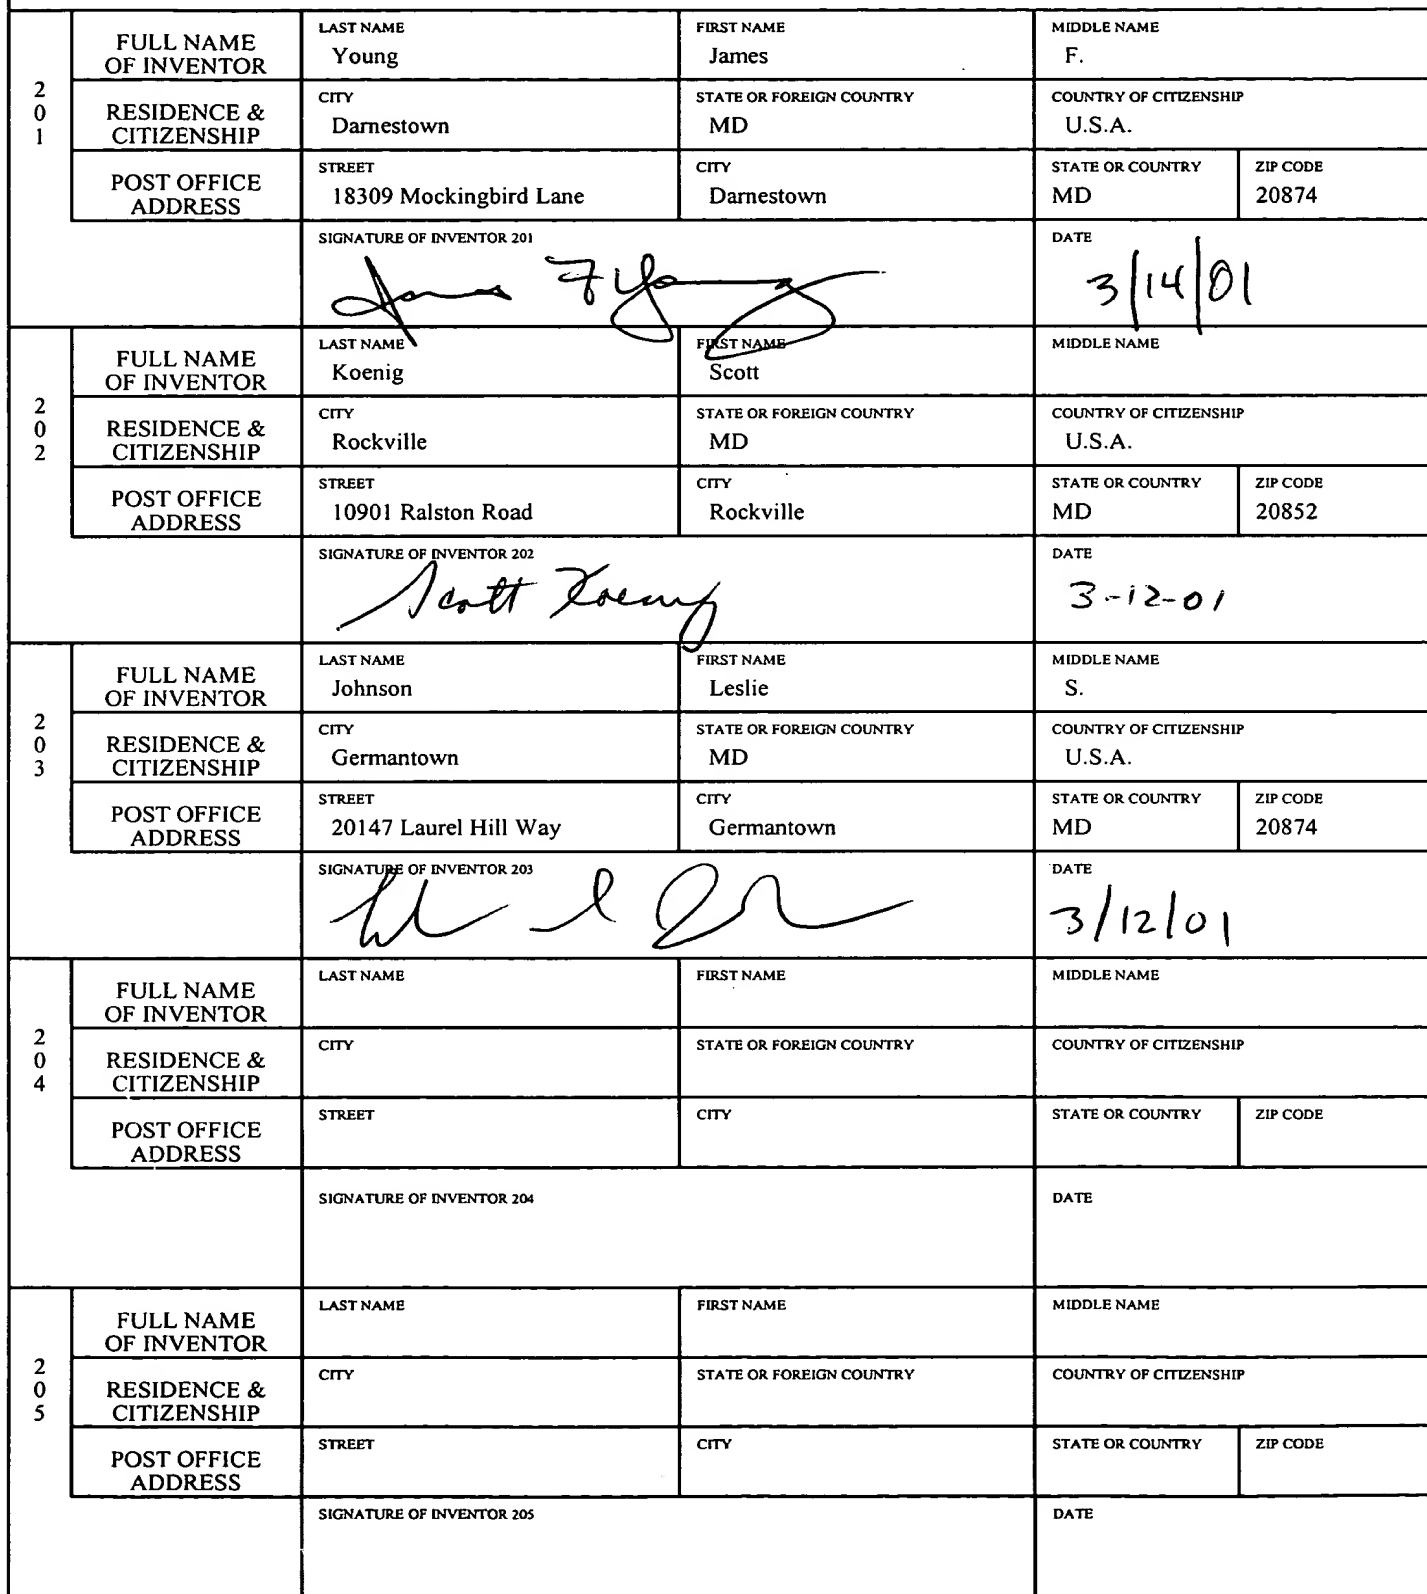 201
FULL NAME OF INVENTOR
LAST NAME
Young
FIRST NAME
James
MIDDLE NAME
F.
RESIDENCE & CITIZENSHIP
CITY
Darnestown
STATE OR FOREIGN COUNTRY
MD
COUNTRY OF CITIZENSHIP
U.S.A.
POST OFFICE ADDRESS
STREET
18309 Mockingbird Lane
CITY
Darnestown
STATE OR COUNTRY
MD
ZIP CODE
20874
SIGNATURE OF INVENTOR 201
James F Young
DATE
3/14/01
202
FULL NAME OF INVENTOR
LAST NAME
Koenig
FIRST NAME
Scott
MIDDLE NAME
RESIDENCE & CITIZENSHIP
CITY
Rockville
STATE OR FOREIGN COUNTRY
MD
COUNTRY OF CITIZENSHIP
U.S.A.
POST OFFICE ADDRESS
STREET
10901 Ralston Road
CITY
Rockville
STATE OR COUNTRY
MD
ZIP CODE
20852
SIGNATURE OF INVENTOR 202
Scott Koenig
DATE
3-12-01
203
FULL NAME OF INVENTOR
LAST NAME
Johnson
FIRST NAME
Leslie
MIDDLE NAME
S.
RESIDENCE & CITIZENSHIP
CITY
Germantown
STATE OR FOREIGN COUNTRY
MD
COUNTRY OF CITIZENSHIP
U.S.A.
POST OFFICE ADDRESS
STREET
20147 Laurel Hill Way
CITY
Germantown
STATE OR COUNTRY
MD
ZIP CODE
20874
SIGNATURE OF INVENTOR 203
DATE
3/12/01
204
FULL NAME OF INVENTOR
LAST NAME
FIRST NAME
MIDDLE NAME
RESIDENCE & CITIZENSHIP
CITY
STATE OR FOREIGN COUNTRY
COUNTRY OF CITIZENSHIP
POST OFFICE ADDRESS
STREET
CITY
STATE OR COUNTRY
ZIP CODE
SIGNATURE OF INVENTOR 204
DATE
205
FULL NAME OF INVENTOR
LAST NAME
FIRST NAME
MIDDLE NAME
RESIDENCE & CITIZENSHIP
CITY
STATE OR FOREIGN COUNTRY
COUNTRY OF CITIZENSHIP
POST OFFICE ADDRESS
STREET
CITY
STATE OR COUNTRY
ZIP CODE
SIGNATURE OF INVENTOR 205
DATE